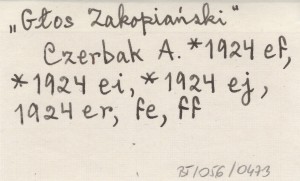 „Głos Zakopiański"
Czerbak A. *1924 ef,
*1924 ei, *1924 ej,
1924 er, fe, ff
25/056/0473